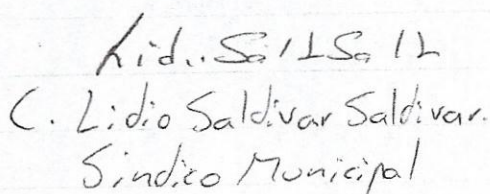 C. Lidio Saldivar Saldivar.
Sindico Municipal